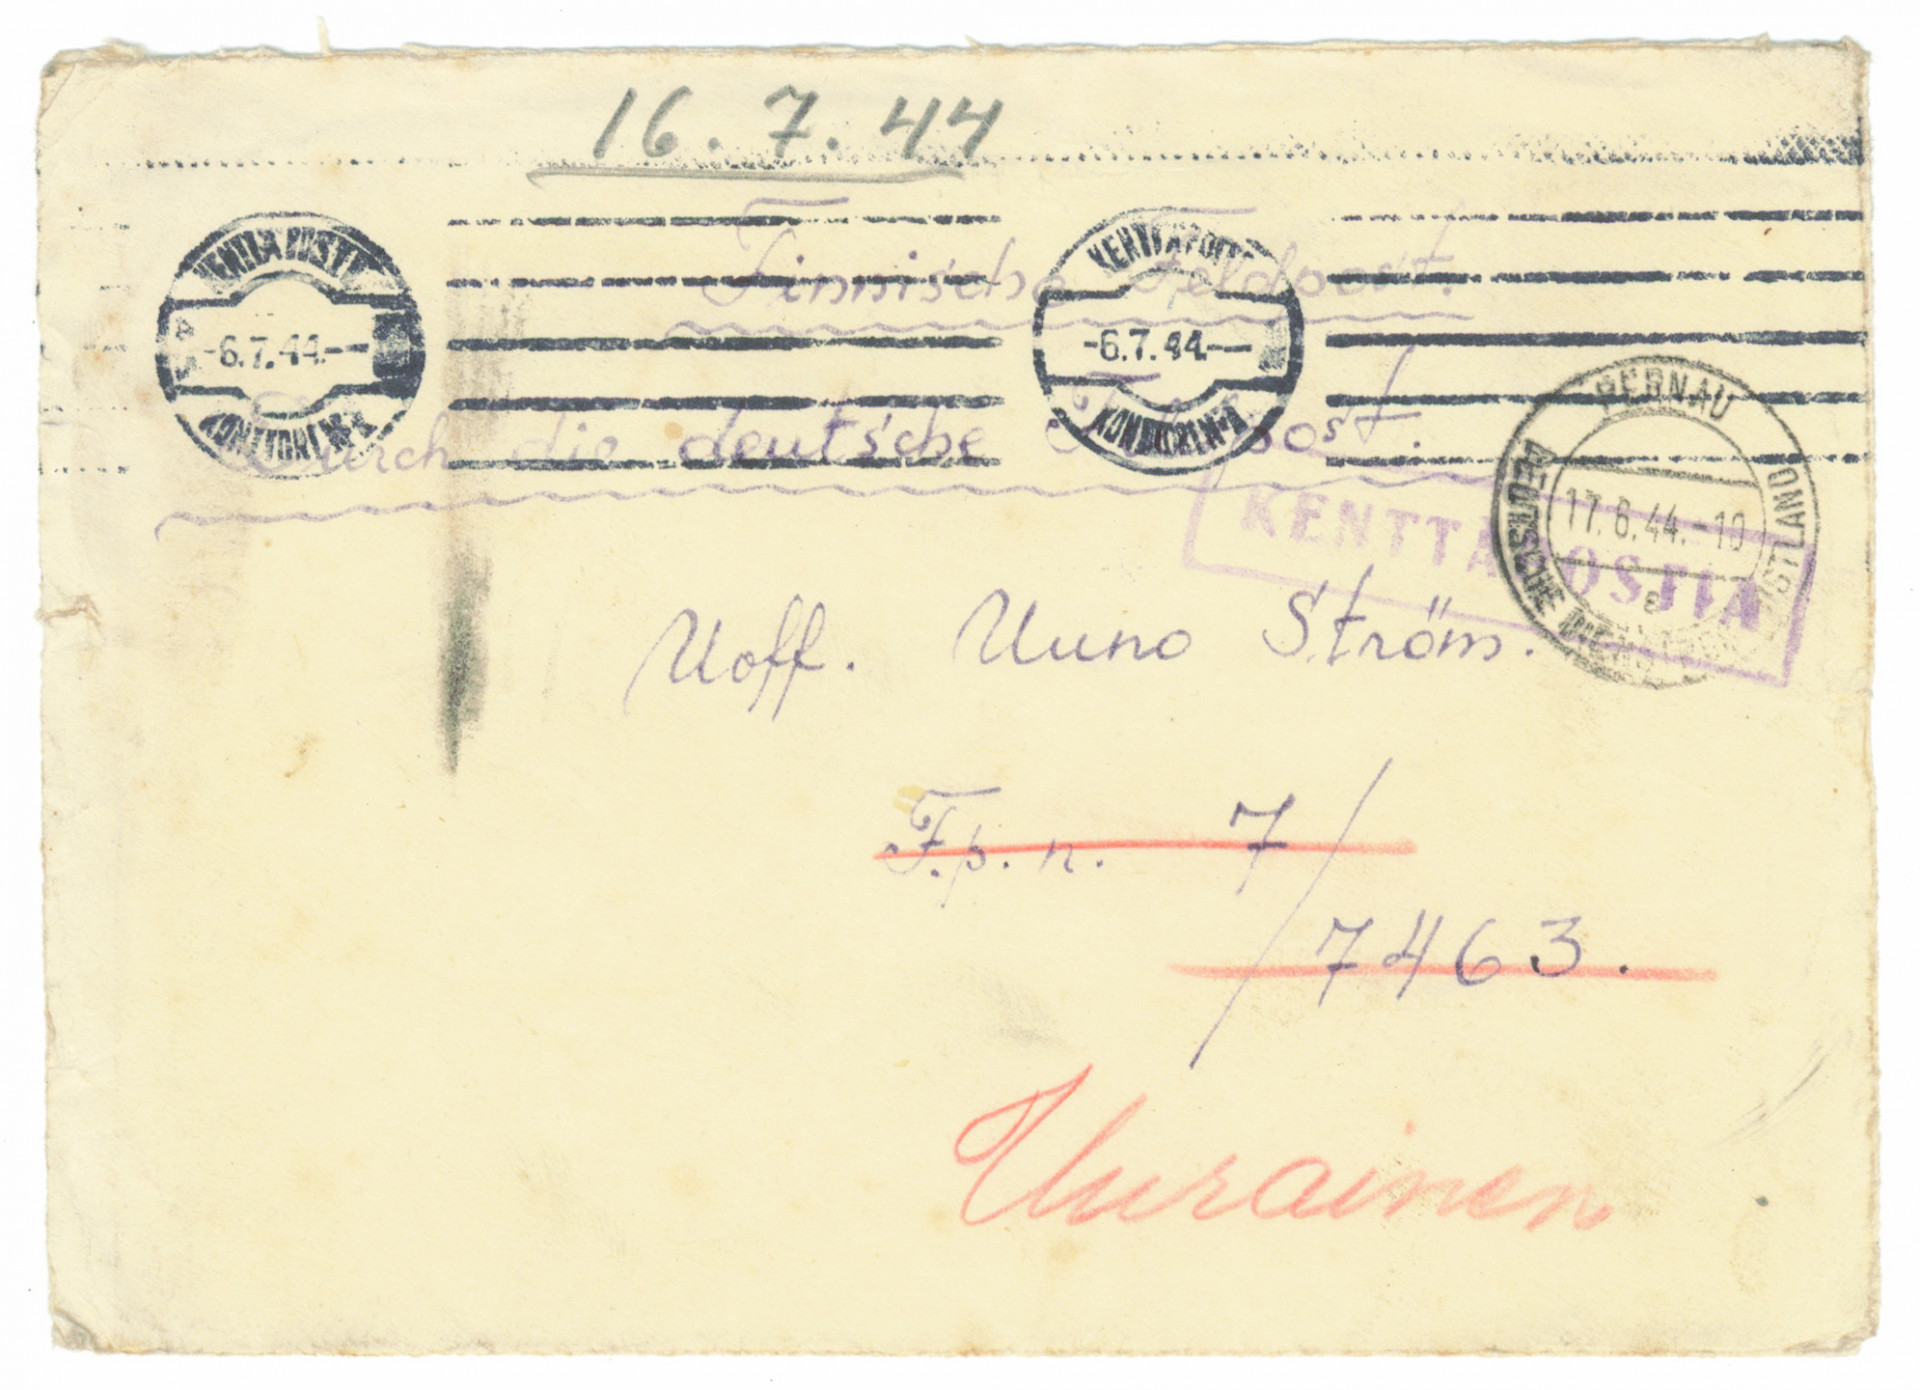 16.7.44
Finnische Feldpost.
KENTTÄPOSTI
-6.7.44.-
KENTTÄPOSTI
-6.7.44.-
Durch die deutsche Feldpost.
PERNAU
17.6.44.-10
e
DEUTSCHE DIENSTPOST OSTLAND
KENTTÄPOSTIA
Uoff. Uuno Ström.
F.p.n. 7/
7463.